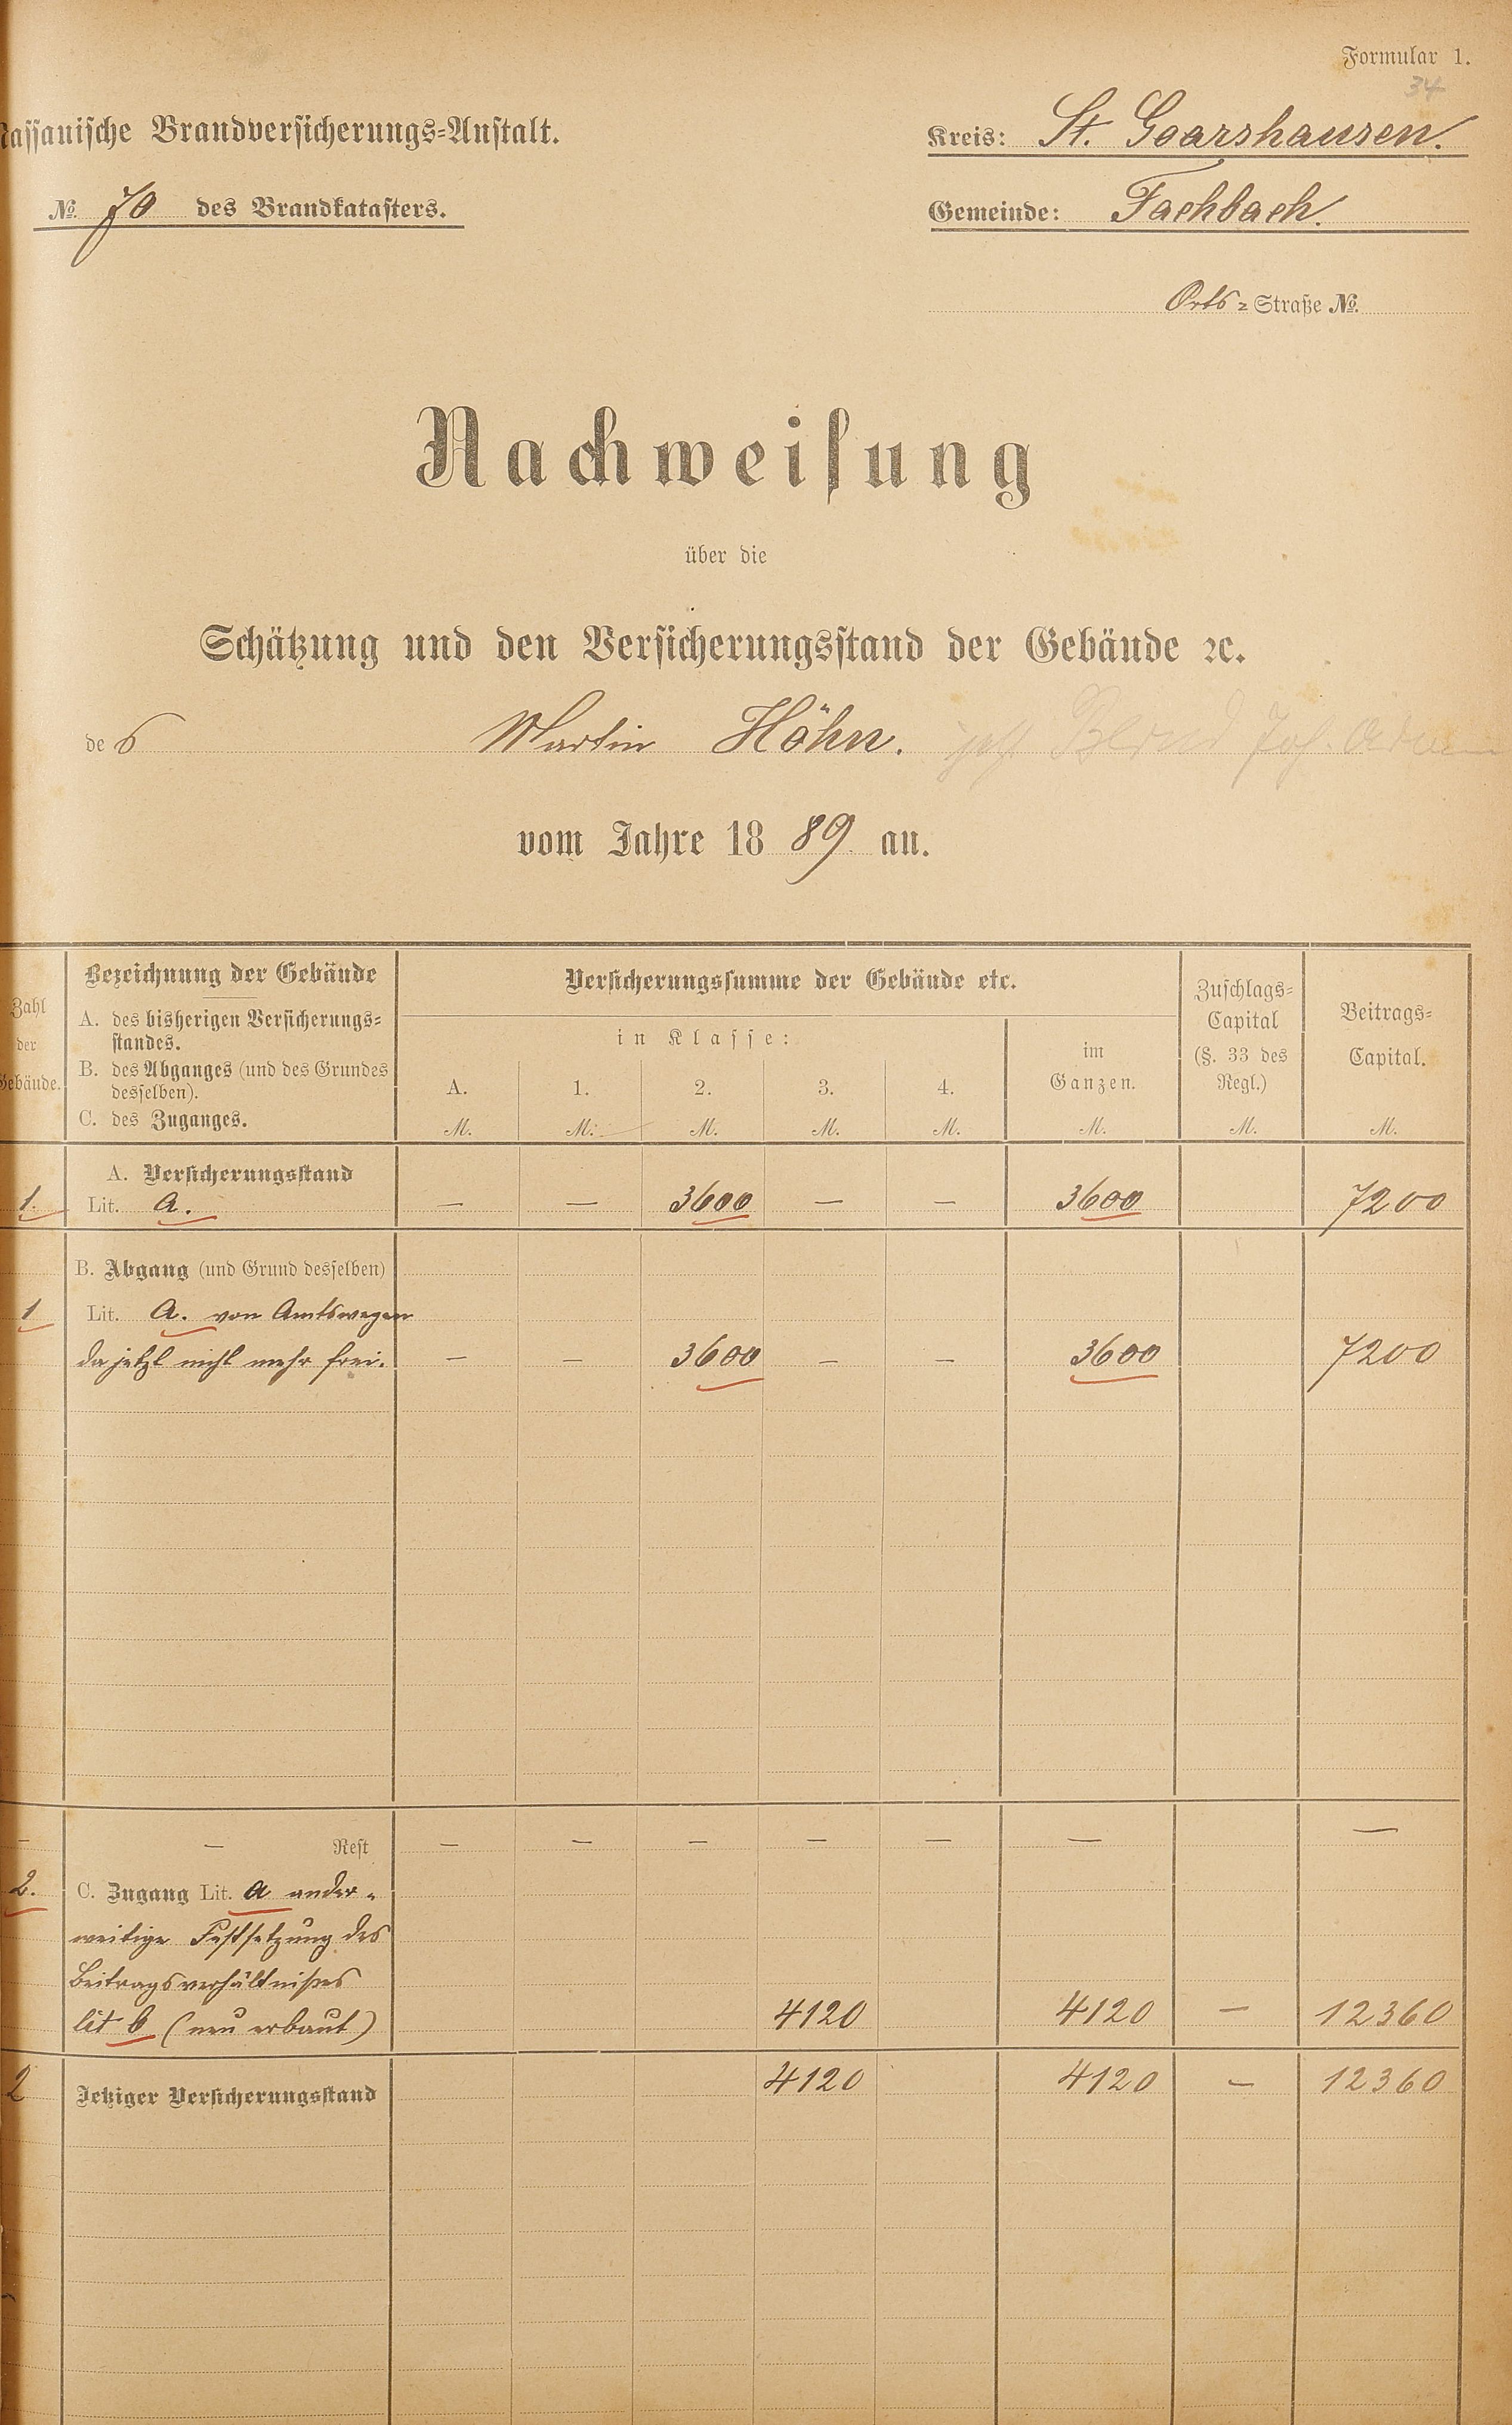 Formular 1.
34
Nassauische Brandversicherungs-Anstalt.
Kreis: St. Goarshausen.
No. 70 des Brandkatasters.
Gemeinde: Fachbach.
Orts-Straße No.
Nachweisung
über die
Schätzung und den Versicherungsstand der Gebäude ꝛc.
des Martin Höhn. jetzt Joh.
vom Jahre 1889 an.
Zahl der Gebäude.
Bezeichnung der Gebäude
A. des bisherigen Versicherungs-
standes.
B. des Abganges (und des Grundes
desselben).
C. des Zuganges.
Versicherungssumme der Gebäude etc.
in Klasse:
A. 1. 2. 3. 4.
M. M. M. M. M.
im
Ganzen.
M.
Zuschlags-
Capital
(§. 33 des
Regl.)
M.
Beitrags-
Capital.
M.
A. Versicherungsstand
1. Lit. a. — — 3600 — — 3600 7200
B. Abgang (und Grund desselben)
1 Lit. a. von Amtswegen
da jetzt nicht mehr frei. — — 3600 — — 3600 7200
— — Rest — — — — — — —
2. C. Zugang Lit. a ander-
weitige Festsetzung des
Beitragsverhältnißes
lit b (neu erbaut) 4120 4120 — 12360
2 Jetziger Versicherungsstand 4120 4120 — 12360